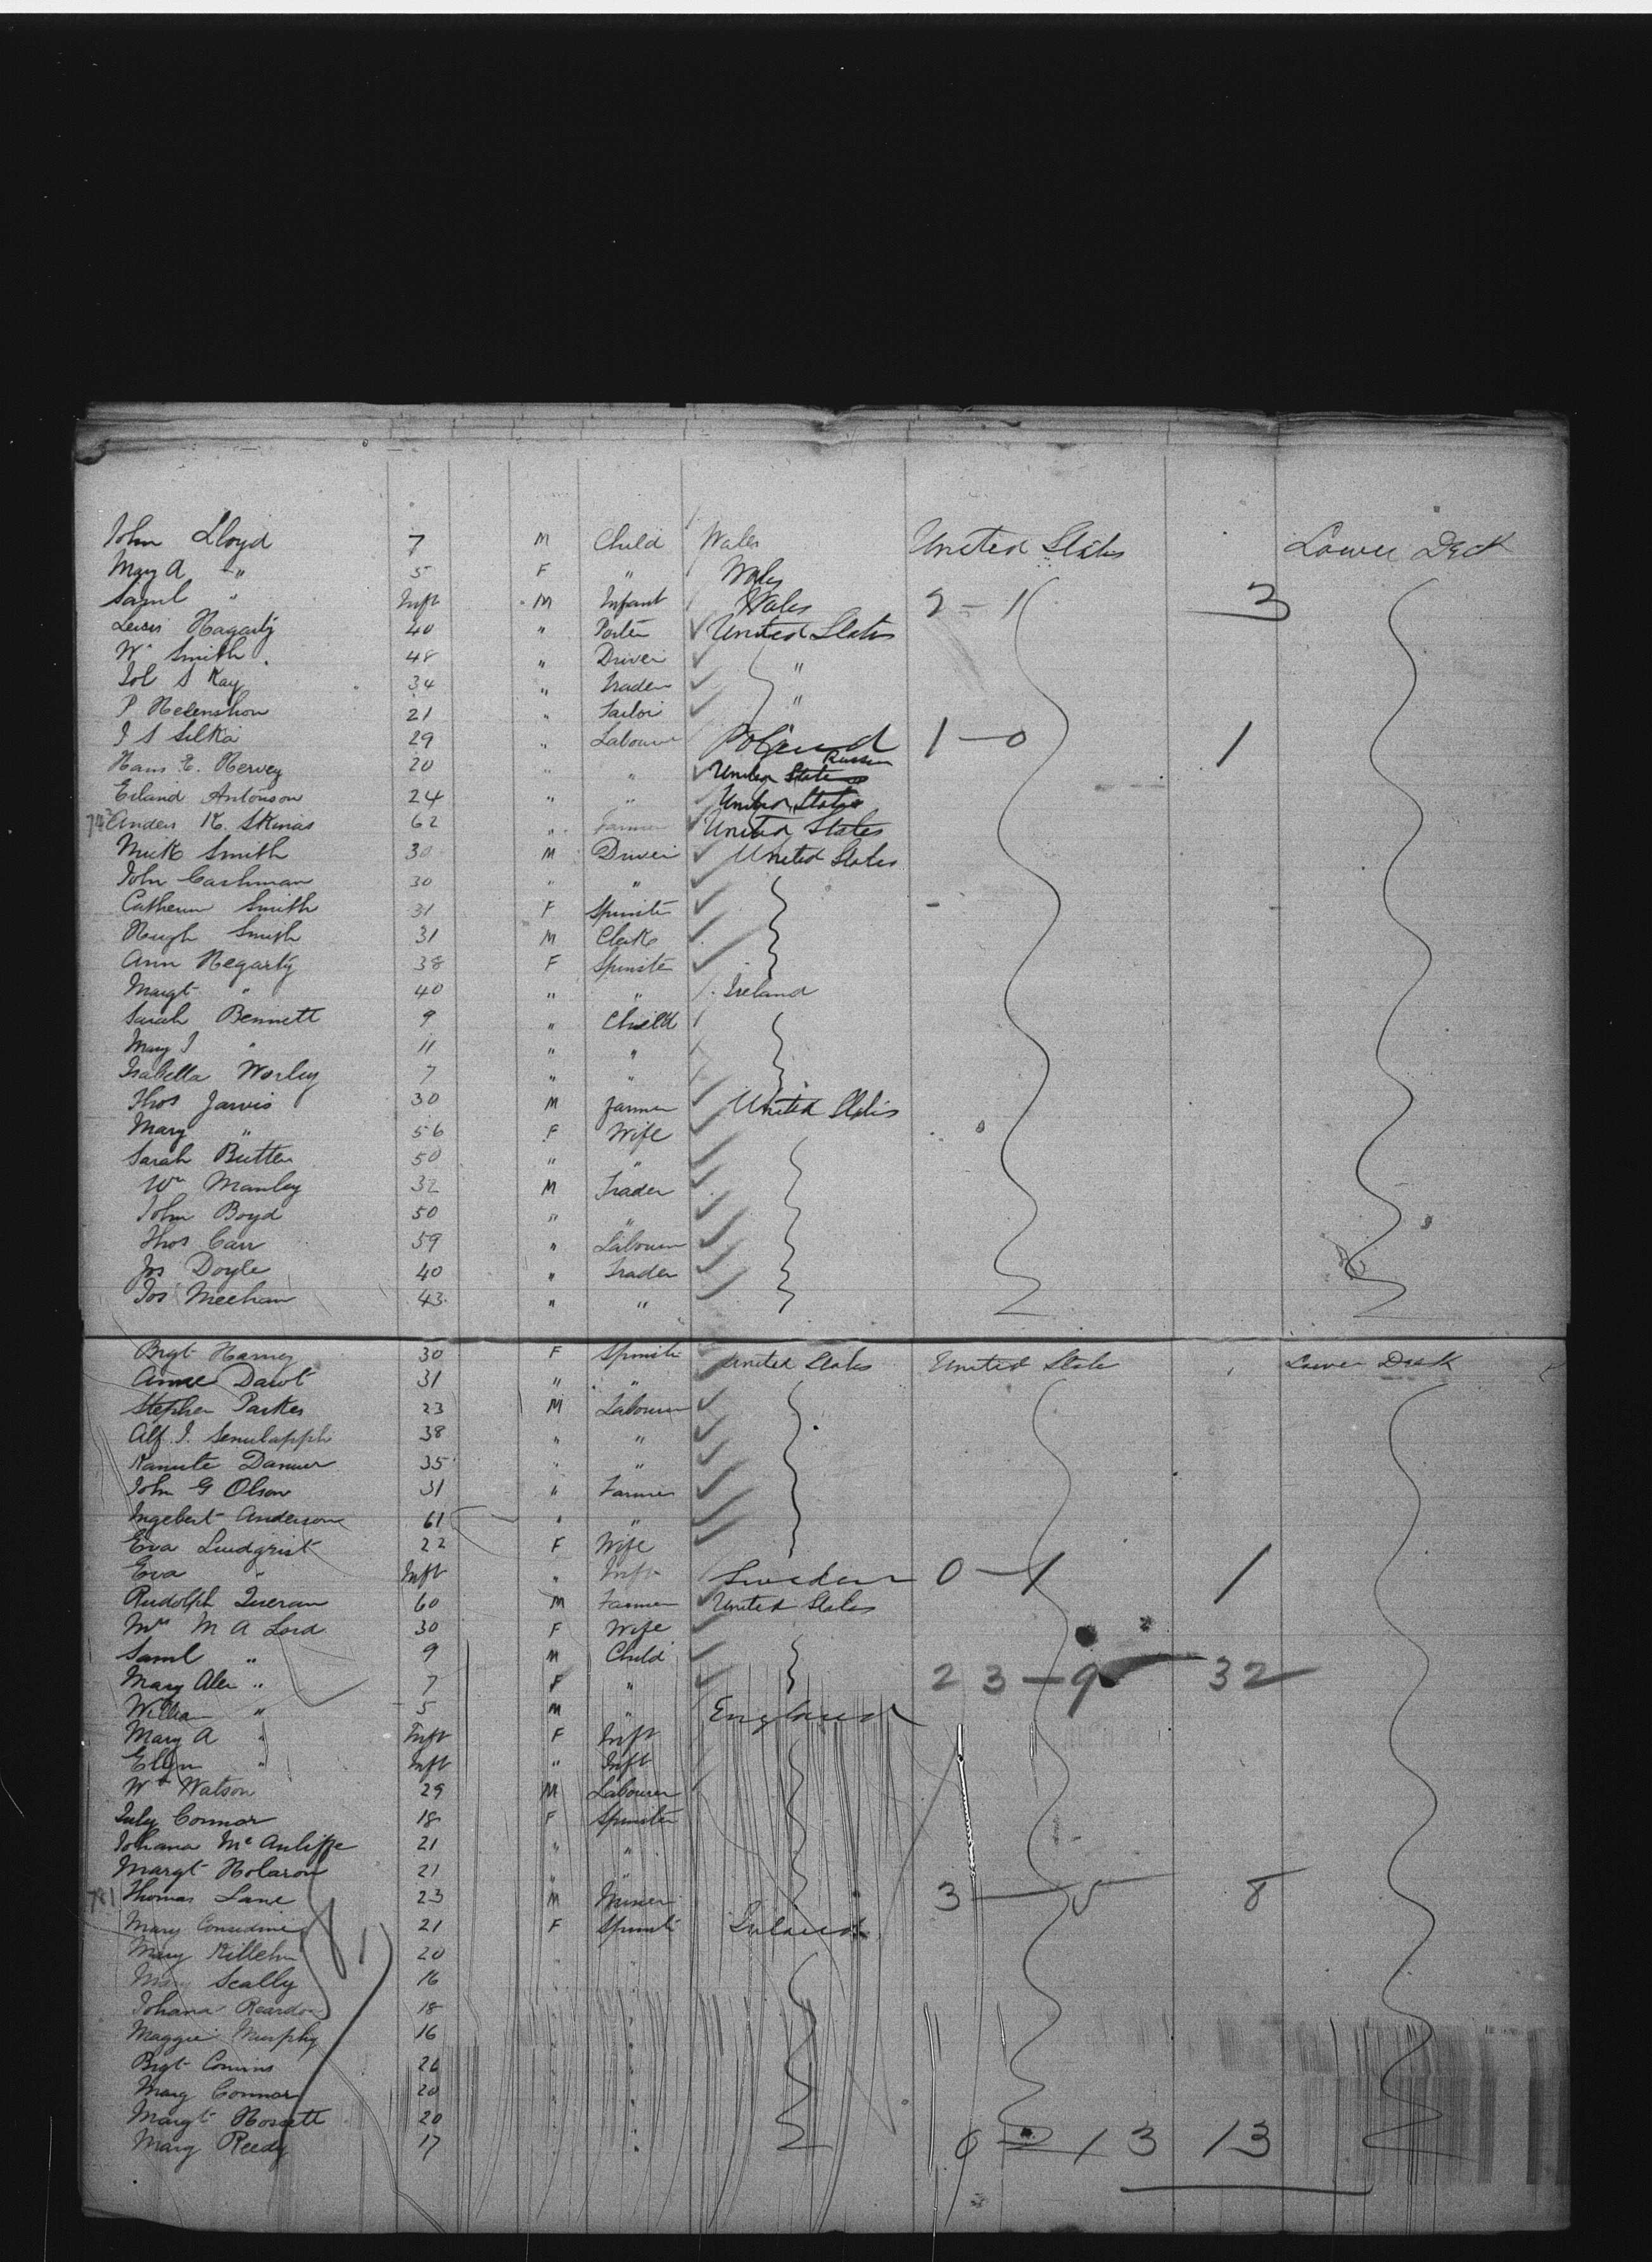 John Lloyd 7 M Child Wales United States Lower Deck
Mary A " 5 F " Wales
Saml " Inft M Infant Wales 2 - 1 3
Lewis Hagarty 40 " Porter United States
Wm Smith 48 " Driver "
34 " Trader "
P 21 " Tailor
J S Silka 29 " Labourer Poland 1 - 0 1
Hans E. Hervey 20 " " United States Russia
Erland Antonson 24 " " United States
Anders K. Skinas 62 " Farmer United States
Mick Smith 30 M Driver United States
John Cashman 30 " "
Catherine Smith 31 F Spinster
Hugh Smith 31 M Clerk
Ann Hegarty 38 F Spinster
Margt " 40 " " Ireland
Sarah Bennett 9 " Child
Mary J " 11 " "
Isabella Worley 7 " "
Thos Jarvis 30 M Farmer United States
Mary " 56 F Wife
Sarah Butter 50 " "
Wm Manley 32 M Trader
John Boyd 50 " "
Thos Carr 59 " Labourer
Jos Doyle 40 " Trader
Jos Meehan 43 " "
Brgt Harney 30 F Spinster United States United States Lower Deck
Anne 31 " "
Stephen Parker 23 M Labourer
Alf. J. 38 " "
Kanute Danner 35 " "
John G Olson 31 " Farmer
Ingebert Anderson 61 " "
Eva Lindqrist 22 F Wife
Eva " Inft " Inft Sweden 0 - 1 1
Rudolph 60 M Farmer United States
Mrs M A Lord 30 F Wife
Saml " 9 M Child
Mary Alen " 7 F " 23 - 9 32
William " 5 M " England
Mary A " Inft F Inft
Ellen " Inft " Inft
Wm Watson 29 M Labourer
July Connor 18 F Spinster
Johana McAuliffe 21 " "
Margt Holaron 21 " "
781 Thomas Lane 23 M Miner 3 - 5 8
Mary Considine 21 F Spinster Ireland
Mary Killehn 20 " "
Mary Scally 16
Johana Reardon 18 " "
Maggie Murphy 16 " "
Brgt Comins 26 " "
Mary Connor 20 " "
Margt Hossett 20 " "
Mary Reedy 17 " " 0 - 13 13